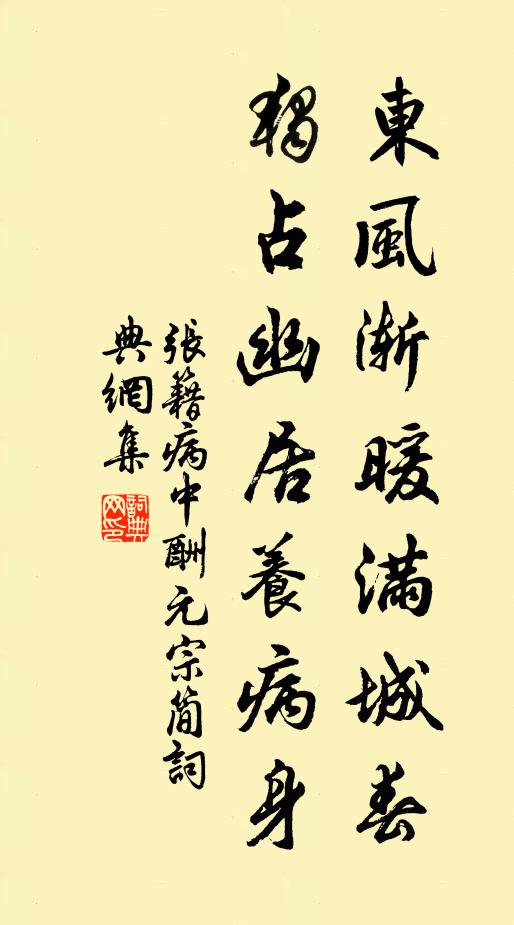 東風漸暖滿城春
獨占幽居養病身
張籍病中酬元宗簡詞
典網集
詞典網印